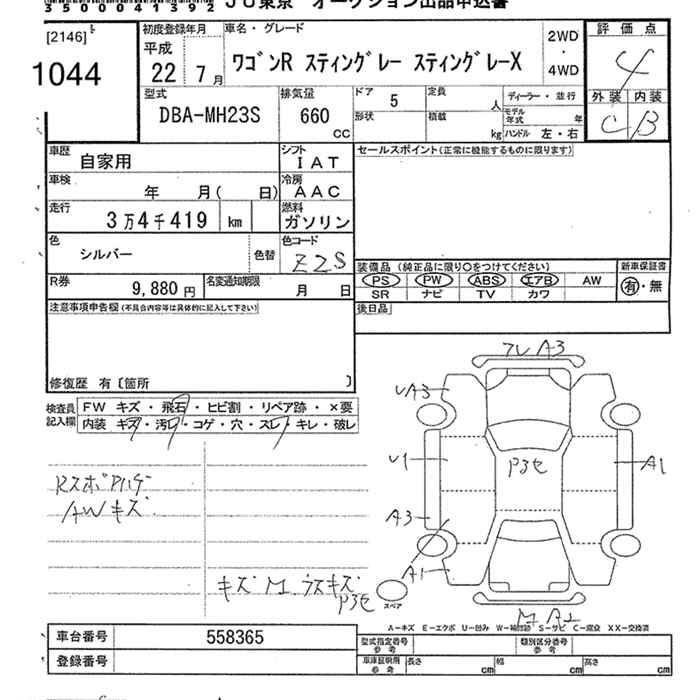 35000413912 JU東京 オークション出品申込書
[2146]
1044
初度登録年月
平成
22年7月
車名・グレード
ワゴンR スティングレー スティングレーX
2WD
・
4WD
評価点
4
外装 内装
C B
型式
DBA-MH23S
排気量
660
CC
ドア 5
形状
定員 人
積載 kg
ディーラー・並行
モデル年式 年
ハンドル 左・右
車歴 自家用
シフト
IAT
セールスポイント(正常に機能するものに限ります)
車検 年 月( 日)
冷房
AAC
走行 3万4千419 km
燃料
ガソリン
色 シルバー
色替
色コード
Z2S
R券 9,880円
名変通知期限 月 日
装備品 (純正品に限り○をつけてください)
新車保証書
PS PW ABS エアB AW
有・無
SR ナビ TV カワ
後日品
注意事項申告欄(不具合内容等は具体的に記入して下さい)
修復歴 有〔箇所 〕
検査員記入欄
FW キズ・飛石・ヒビ割・リペア跡・×要
内装 キズ・汚レ・コゲ・穴・スレ・キレ・破レ
AWキズ
キズ M
P3セ
A3
UA3
U1
P3セ
A1
A3
A1
スペア
A2
A−キズ E−エクボ U−凹み W−補修跡 S−サビ C−腐食 XX−交換済
車台番号 558365
登録番号
型式指定番号 参考
類別区分番号 参考
車庫証明用 参考
長さ cm
幅 cm
高さ cm